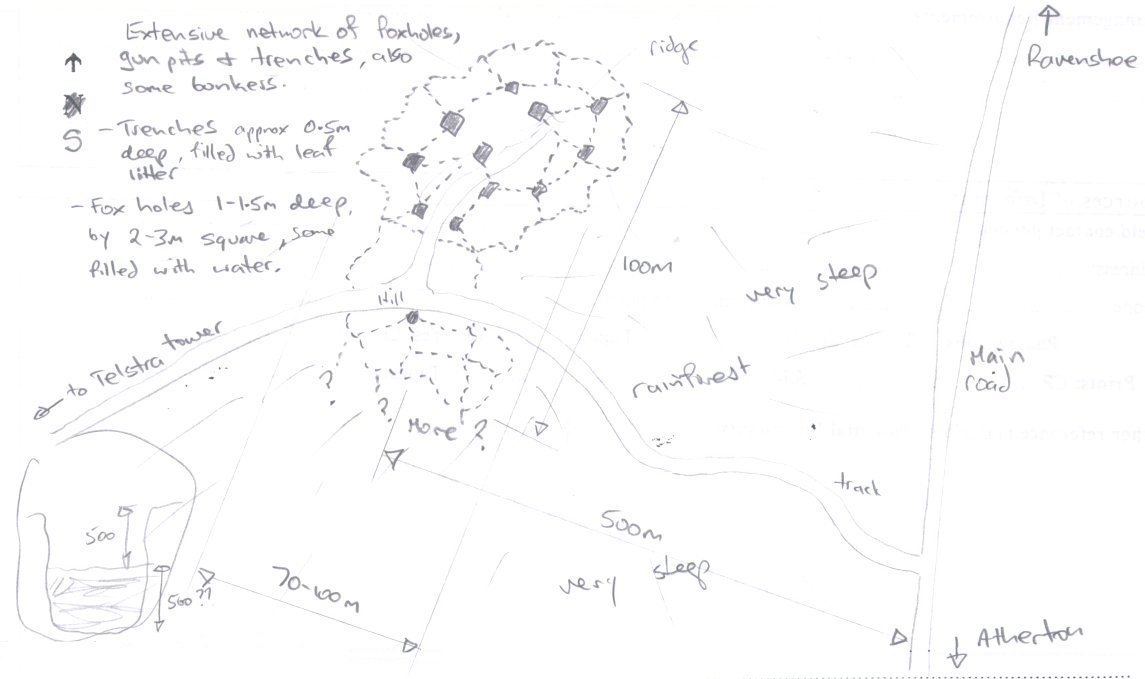 Extensive network of foxholes,
gun pits & trenches, also
some bonkess.
N
S
- Trenches approx 0.5m
deep, filled with leaf
litter
- Fox holes 1-1.5m deep,
by 2-3m square, some
filled with water.
ridge
Ravenshoe
100m
very steep
Hill
to Telstra tower
rainforest
Main
road
?
?
More ?
track
500
500??
500m
70-100m
very steep
Atherton